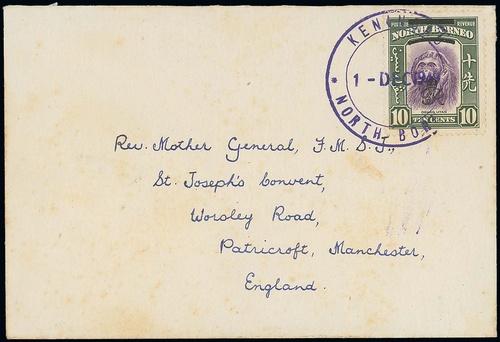 KENI
1 - DEC 194
* NORTH BOR
POSTAGE REVENUE
NORTH BORNEO
十先
10 TEN CENTS 10
Rev. Mother General, F.M.S.J.,
St. Joseph's Convent,
Worsley Road,
Patricroft, Manchester,
England.